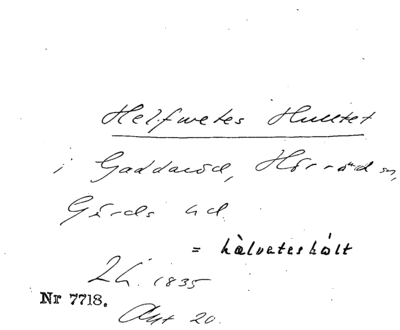 Helfwetes Hultet
i Gaddaröd, Hörröds sn,
Gärds hd.
= hàlveteshólt
LÅ. 1835
Nr 7718.
Akt 20.